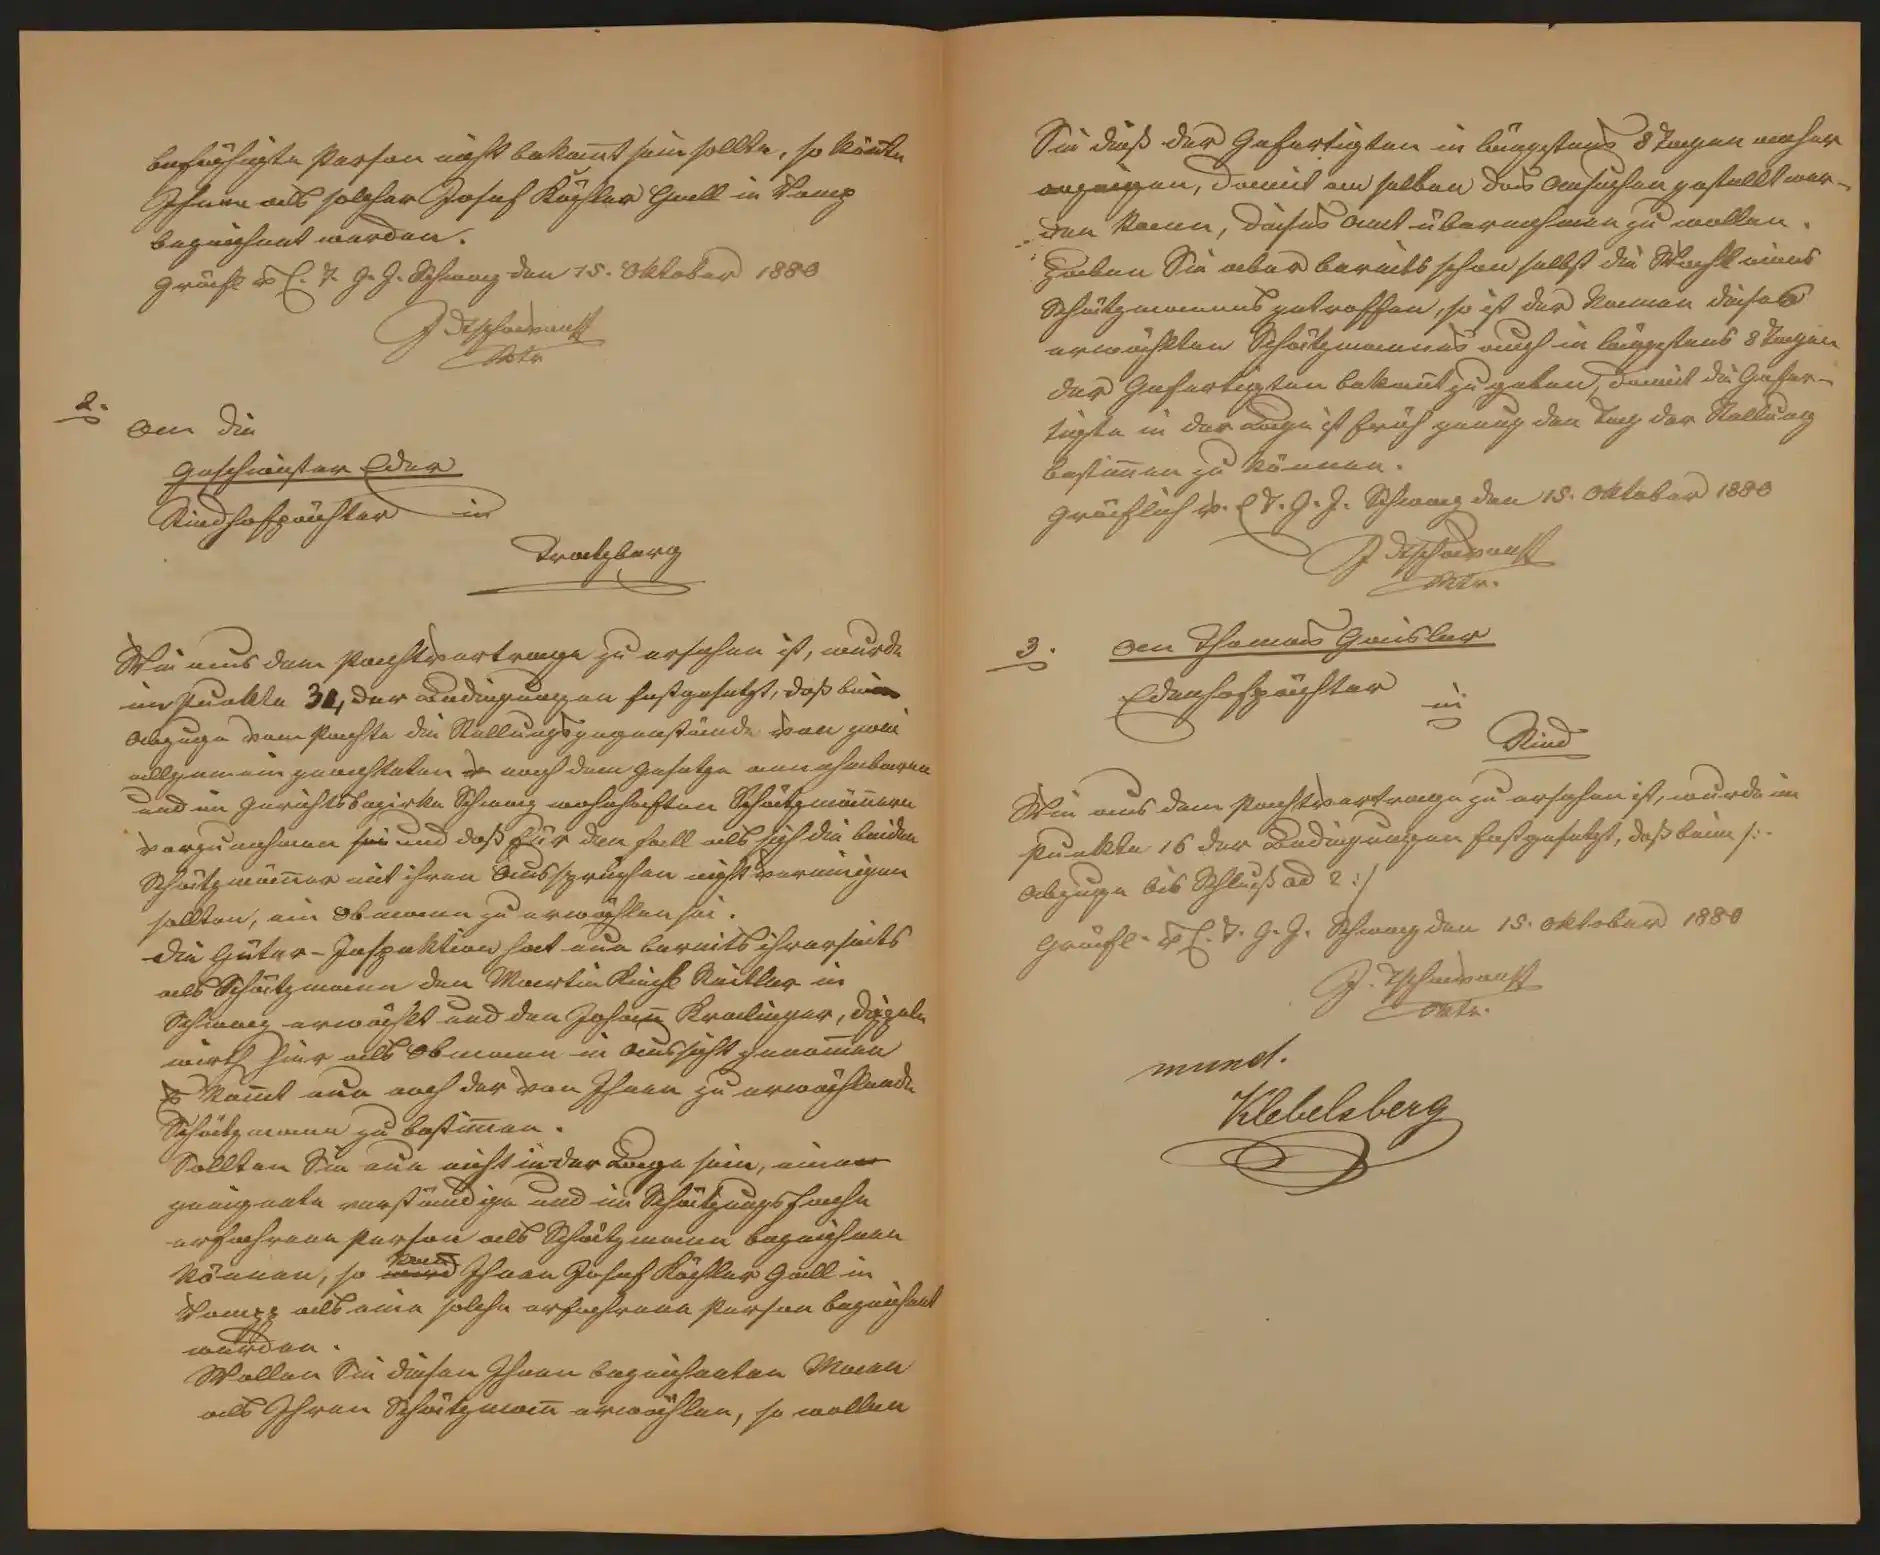 befähigte Person nicht bekannt sein sollte, so könnte
Ihnen als solcher Josef Köchler Goell in Vomp
bezeichnet werden.
Gräfl v E. T. G. J. Schwaz den 15. Oktober 1880
2.
An die
Geschwister Eder
Riedhofpächter in
Tratzberg
Wie aus dem Pachtvertrage zu ersehen ist, wurde
im Punkte 31, der Bedingungen festgesetzt, daß beim
Abzuge vom Pachte die Stellungsgegenstände von zwei
allgemein geachteten u nach dem Gesetze annehmbaren
und im Gerichtsbezirke Schwaz wohnhaften Schätzmännern
vorzunehmen sei und daß für den Fall als sich die beiden
Schätzmänner mit ihren Aussprüchen nicht vereinigen
sollten, ein Obmann zu erwählen sei.
Die Güter-Inspektion hat nun bereits ihrerseits
als Schätzmann den Martin Reitler in
Schwaz erwählt und den Johann Kralinger,
wirth hier als Obmann in Aussicht genommen
Es kommt nun noch der von Ihnen zu erwählende
Schätzmann zu bestimmen.
Sollten Sie nun nicht in der Lage sein, eine
geeignete verständige und im Schätzungsfache
erfahrene Person als Schätzmann bezeichnen
können, so kann Ihnen Josef Köchler Goell in
Vomp als eine solche erfahrene Person bezeichnet
werden.
Wollen Sie diesen Ihnen bezeichneten Mann
als Ihren Schätzmann erwählen, so wollen
Sie dieß der Gefertigten in längstens 8 Tagen anher
anzeigen, damit an selben das Ansuchen gestellt wer-
den kann, dieses Amt übernehmen zu wollen.
Haben Sie aber bereits schon selbst die Wahl eines
Schätzmannes getroffen, so ist der Namen dieses
erwählten Schätzmannes auch in längstens 8 Tagen
der Gefertigten bekannt zu geben, damit die Gefer-
tigte in der Lage ist früh genug den Tag der Stellung
bestimmen zu können.
Gräflich v. E. T. G. J. Schwaz den 15. Oktober 1880
3. An Thomas Geisler
Edenhofpächter in
Stind
Wie aus dem Pachtvertrage zu ersehen ist, wurde im
Punkte 16 der Bedingungen festgesetzt, daß beim /:
Abzuge bis Schluß ad 2 :/
Gräfl. v E. T. G. J. Schwaz den 15. Oktober 1880
mund.
Klebelsberg